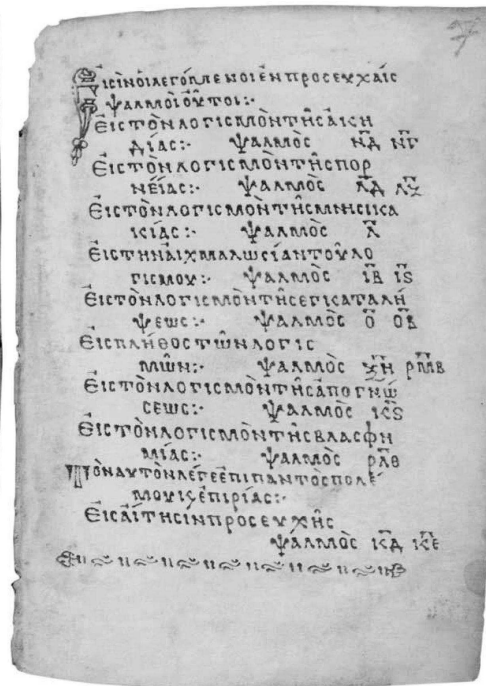 Εἰσὶν οἱ λεγόμενοι ἐν προσευχαῖς
ψαλμοὶ οὗτοι:-
Εἰς τὸν λογισμὸν τῆς ἀκη
δίας:- ψαλμὸς νδ νγ
Εἰς τὸν λογισμὸν τῆς πορ
νείας:- ψαλμὸς
Εἰς τὸν λογισμὸν τῆς μνησικα
κίας:- ψαλμὸς λ
Εἰς τὴν αἰχμαλωσίαν τοῦ λο
γισμου:- ψαλμὸς ιβ ις
Εἰς τὸν λογισμὸν τῆς ἐγκαταλή
ψεως:- ψαλμὸς ο οβ
Εἰς πλῆθος τῶν λογις
μῶν:- ψαλμὸς ρμβ
Εἰς τὸν λογισμὸν τῆς ἀπογνώ
σεως:- ψαλμὸς κς
Εἰς τὸν λογισμὸν τῆς βλασφη
μίας:- ψαλμὸς ρλθ
Τὸν αυτὸν λέγε ἐπὶ παντὸς πολέ
μου κ ἐπιρίας:-
Εἰς αἴτησιν προσευχῆς
ψαλμὸς κδ κε